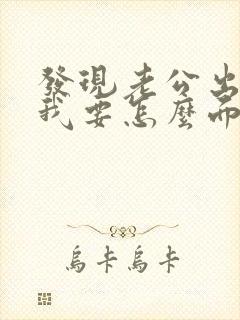 發現老公出
我要怎麼而
烏卡烏卡